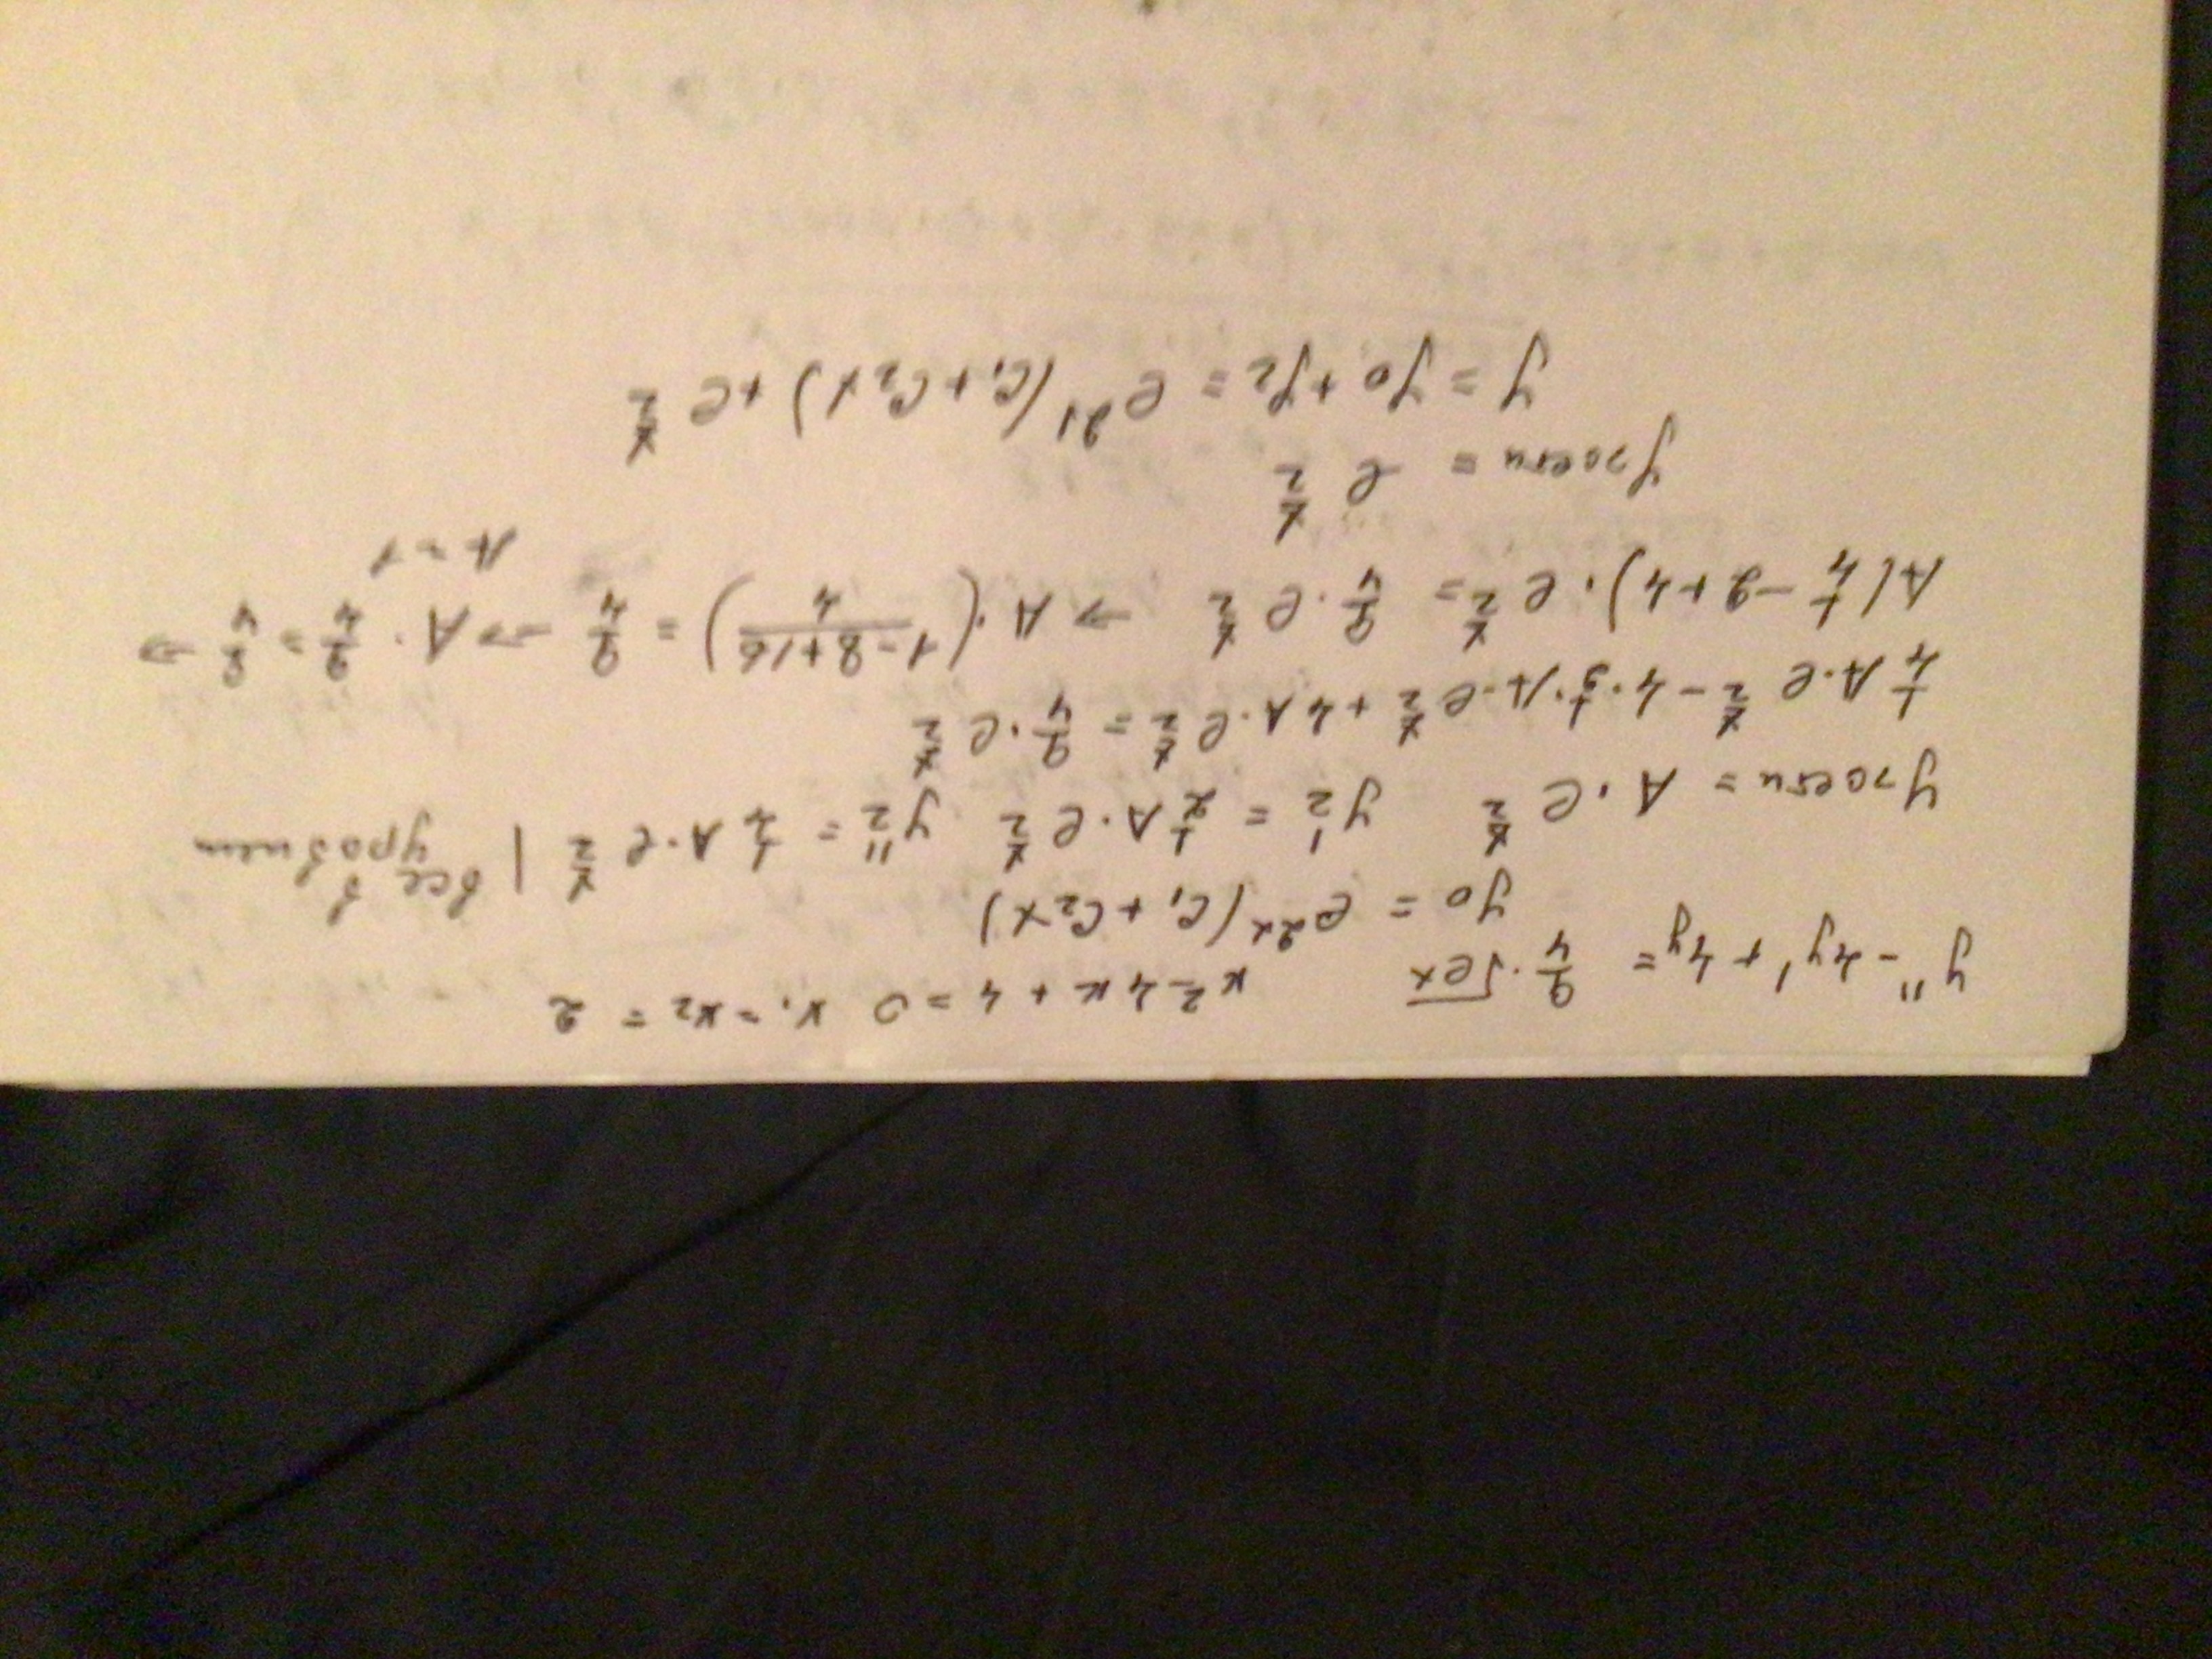 y'' - 4y' + 4y = 9/4 · √eˣ   к² - 4к + 4 = 0   к₁ = к₂ = 2
y₀ = e²ˣ(C₁ + C₂x)
yчастн = A · e^(x/2)   y₂' = 1/2 A · e^(x/2)   y₂'' = 1/4 A · e^(x/2) | все в
1/4 A · e^(x/2) - 4 · 1/2 · A · e^(x/2) + 4A · e^(x/2) = 9/4 · e^(x/2)
A(1/4 - 2 + 4) · e^(x/2) = 9/4 · e^(x/2) ⇒ A · ((1 - 8 + 16)/4) = 9/4 ⇒ A · 9/4 = 9/4 ⇒
A = 1
yчастн = e^(x/2)
y = y₀ + y₂ = e²ˣ(C₁ + C₂x) + e^(x/2)